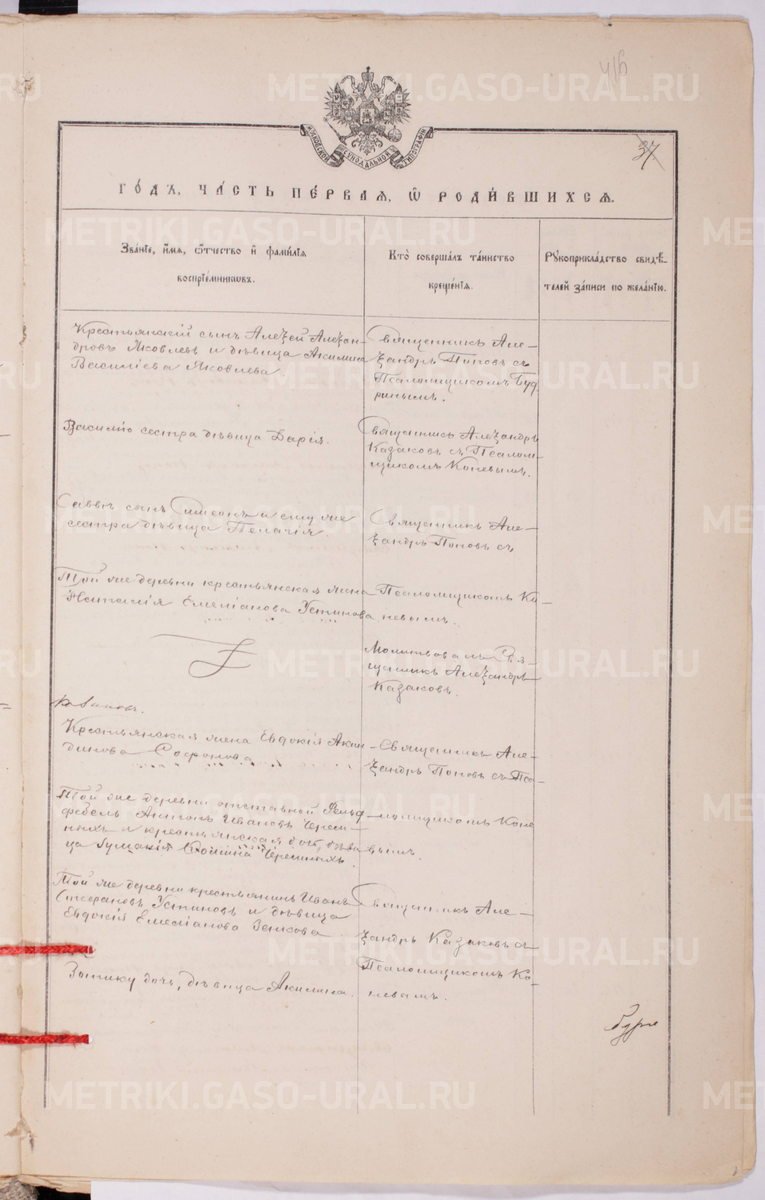 416
37
МОСКОВСКОЙ СѴНОДАЛЬНОЙ ТИПОГРАФІИ
ГОДЪ, ЧАСТЬ ПЕРВАЯ, Ѡ РОДИВШИХСЯ.
Званіе, имя, отчество и фамилія
воспріемниковъ.
Кто совершалъ таинство
крещенія.
Рукоприкладство свидѣ-
телей записи по желанію.
Крестьянскій сынъ Алексѣй Алексан-
дровъ Яковлевъ и дѣвица Акилина
Василіева Яковлева.
Священникъ Але-
ксандръ Поповъ съ
Псаломщикомъ Буд-
ринымъ.
сестра дѣвица Дарія.
Священникъ Александръ
Казаковъ съ Псалом-
щикомъ Коневымъ.
Саввы сынъ Симеонъ и ему же
сестра дѣвица Пелагія
Священникъ Але-
ксандръ Поповъ съ
Той же деревни крестьянская жена
Наталія Емеліанова Устинова
Псаломщикомъ Ко-
невымъ.
Молитвовалъ Свя-
щенникъ Александръ
Казаковъ.
Крестьянская жена Евдокія Акин-
динова
Священникъ Але-
ксандръ Поповъ съ Пса-
Той же деревни отставной Фельд-
фебель Антонъ Ивановъ Черем-
ныхъ и крестьянская дочь, дѣви
ца Черемныхъ.
ломщикомъ Коне
вымъ.
Той же деревни крестьянинъ Иванъ
Стефановъ Устиновъ и дѣвица
Евдокія Емеліанова Зенкова
Священникъ Але-
ксандръ Казаковъ съ
Псаломщикомъ Ко-
невымъ.
дочь, дѣвица Акилина.
METRIKI.GASO-URAL.RU